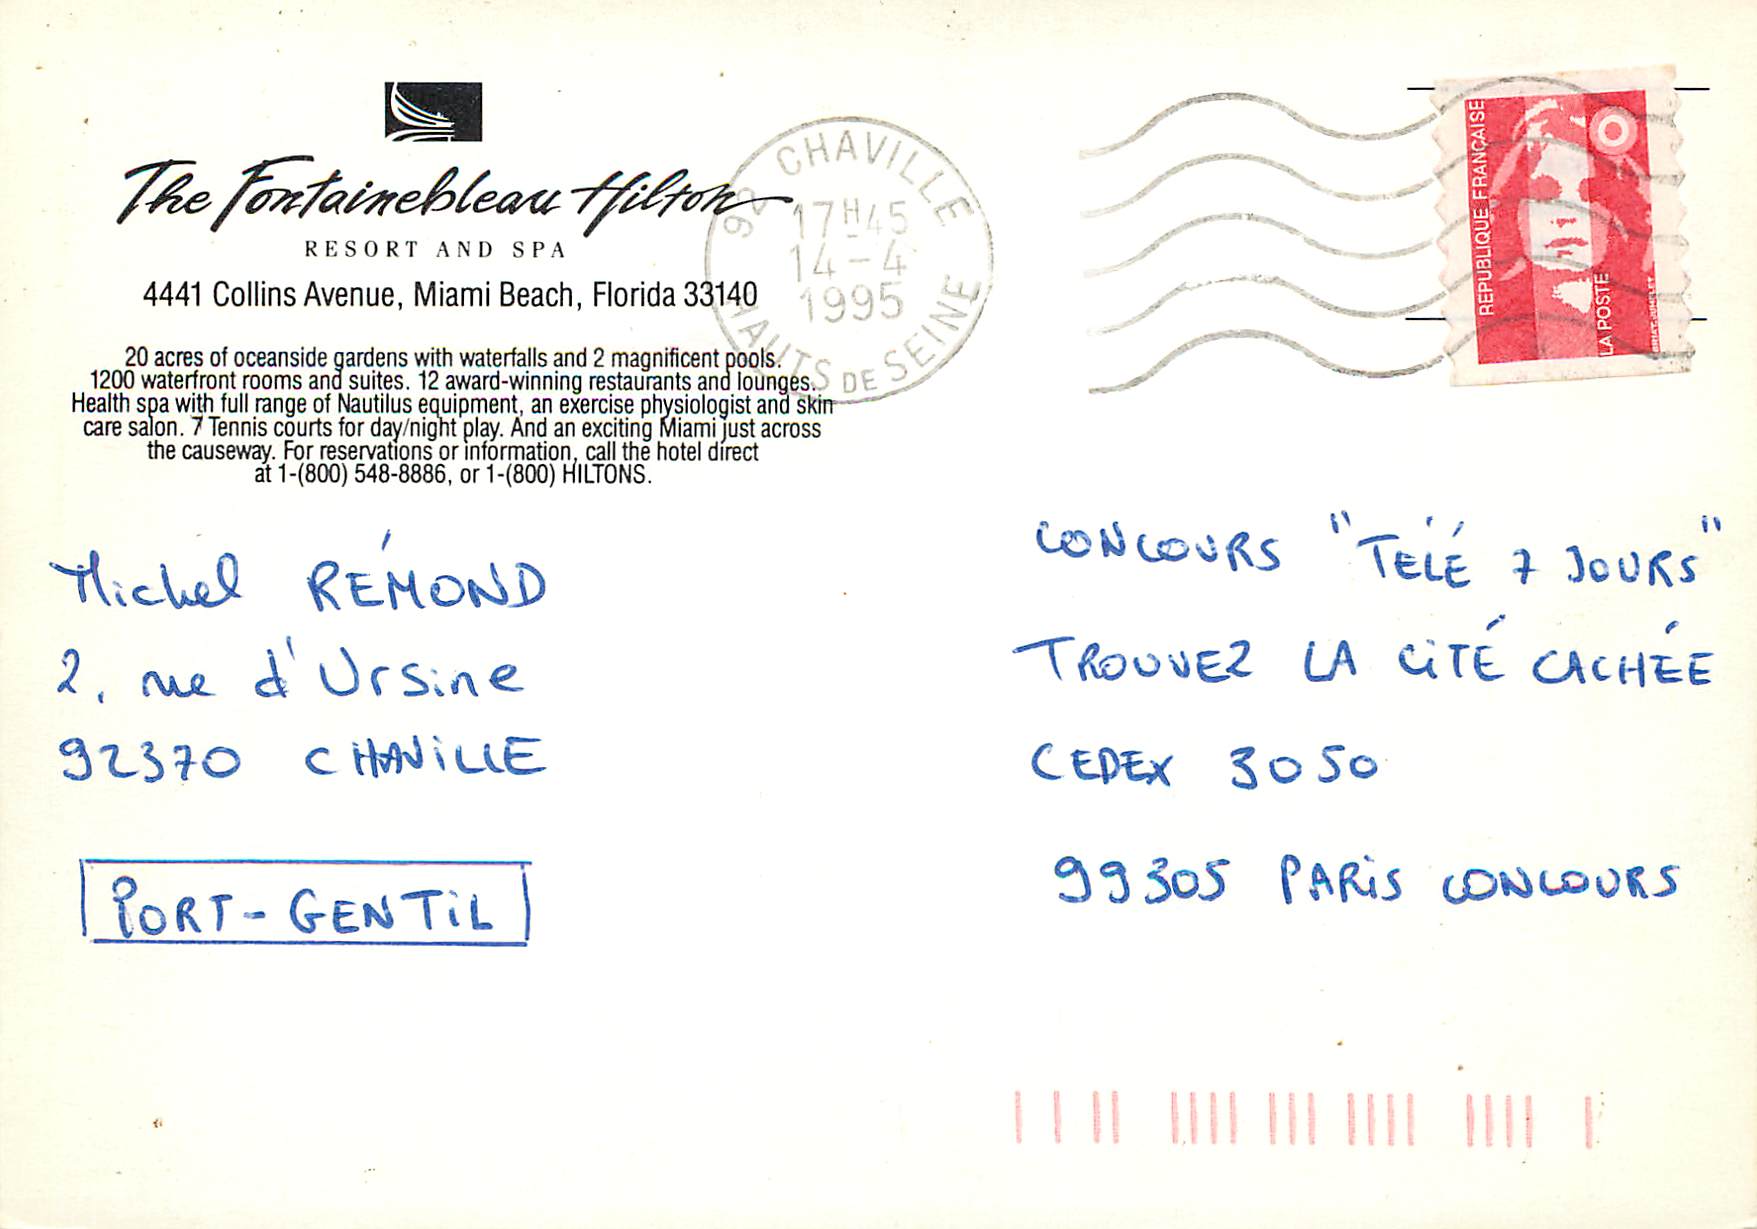 The Fontainebleau Hilton
RESORT AND SPA
4441 Collins Avenue, Miami Beach, Florida 33140
20 acres of oceanside gardens with waterfalls and 2 magnificent pools.
1200 waterfront rooms and suites. 12 award-winning restaurants and lounges.
Health spa with full range of Nautilus equipment, an exercise physiologist and skin
care salon. 7 Tennis courts for day/night play. And an exciting Miami just across
the causeway. For reservations or information, call the hotel direct
at 1-(800) 548-8886, or 1-(800) HILTONS.
92 CHAVILLE
17H45
14-4
1995
HAUTS DE SEINE
REPUBLIQUE FRANÇAISE
LA POSTE
BRIAT.JUMELET
Michel RÉMOND
2, rue d'Ursine
92370 CHAVILLE
PORT-GENTIL
CONCOURS "TÉLÉ 7 JOURS"
TROUVEZ LA CITÉ CACHÉE
CEDEX 3050
99305 PARIS CONCOURS